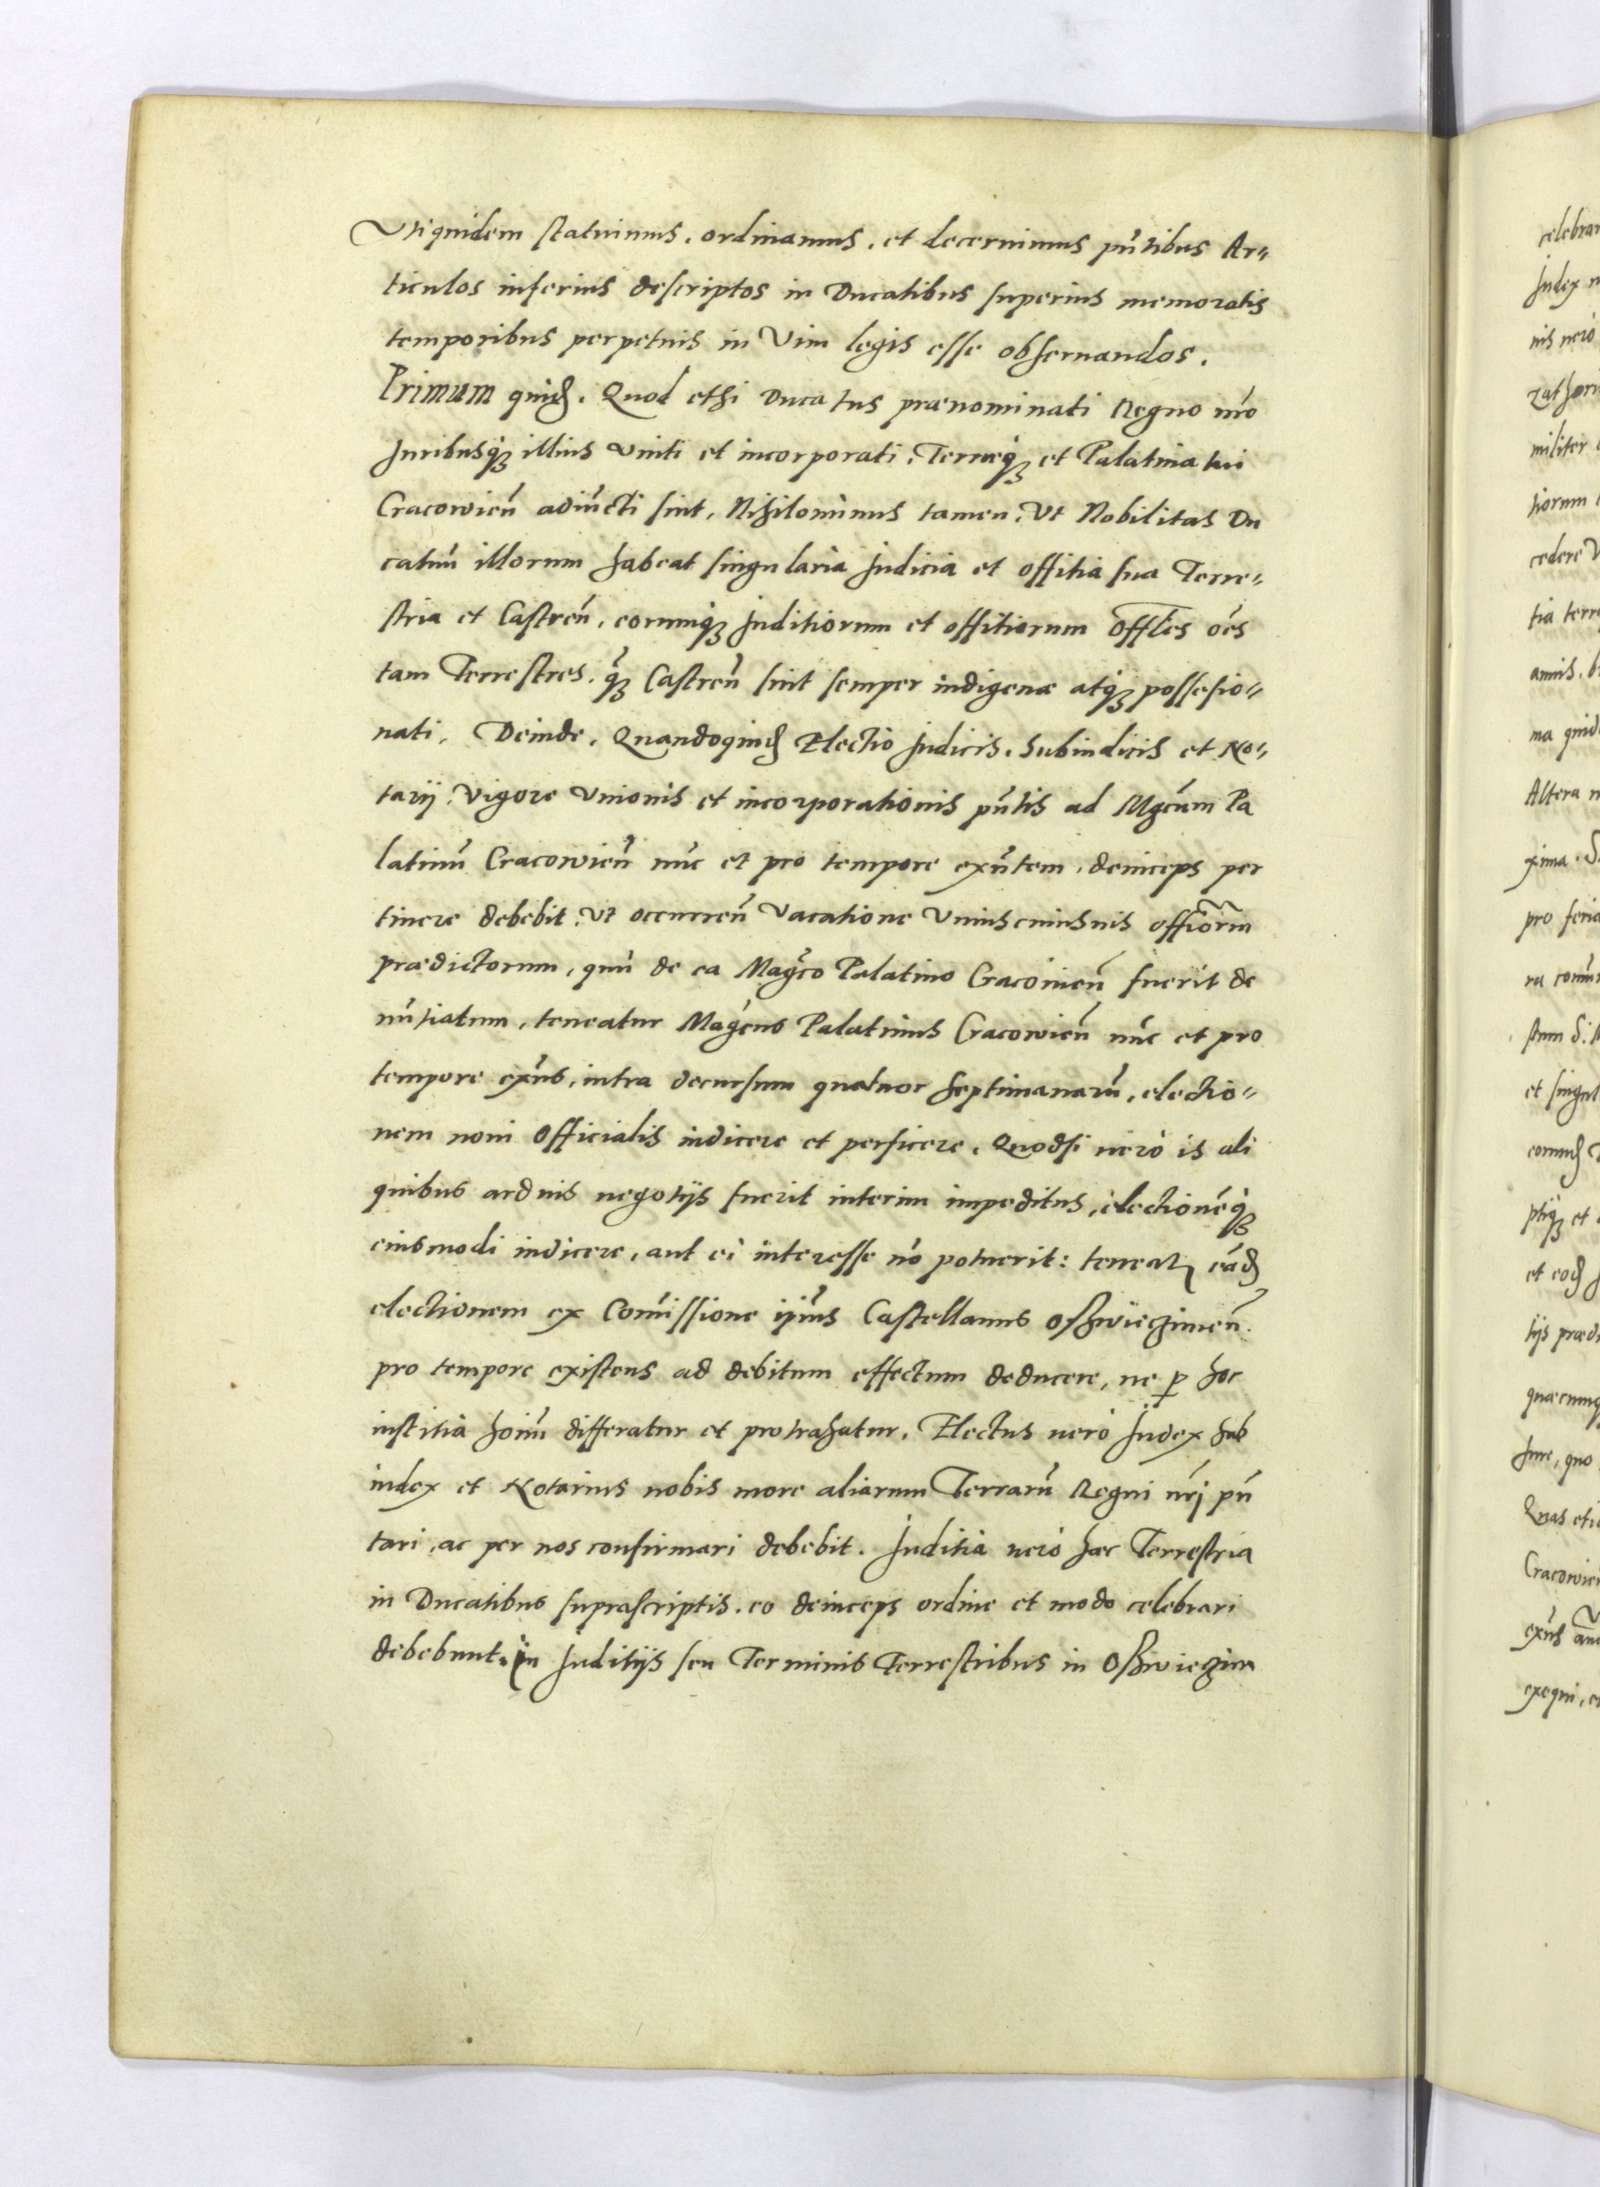 Vtiquidem statuimus, ordinamus, et decernimus pñtibus Ar„
ticulos inferius descriptos in Ducatibus superius memoratis
temporibus perpetuis in Vim legis esse obseruandos.
Primum quiđ. Quod etsi Ducatus prænominati Regno nr̃o
Juribusq́ꝫ illius Vniti et incorporati, Terræq́ꝫ et Palatinatui
Cracowieñ adiũcti sint, Nihilominus tamen, Vt Nobilitas Du
catuũ illorum habeat singularia Judicia et offitia sua Terre„
stria et Castreñ, eorumq́ꝫ Juditiorum et offitiorum Offl̃es oẽs
tam Terrestres, q̃ꝫ Castreñ sint semper indigenæ atq́ꝫ possesio„
nati, Deinde, Quandoquiđ Electio Judicis, Subiudicis et No„
tarij, Vigore Vnionis et incorporationis pñtis ad Mgcũm Pa
latinũ Cracowieñ nũc et pro tempore exñtem, deinceps per
tinere debebit, Vt occurreñ Vacatione Vniuscuiusuis offiõrũ
prædictorum, quũ de ea Mag̃co Palatino Cracouieñ fuerit de
nũtiatum, teneatur Mag̃cus Palatinus Cracowieñ nũc et pro
tempore exñs, intra decursum quatuor septimanarũ, electio„
nem noui Officialis indicere et perficere, Quodsi uerò is ali
quibus arduis negotijs fuerit interim impeditus, electionẽq́ꝫ
eiusmodi indicere, aut ei interesse nõ potuerit: teneatꝛ eãđ
electionem ex Com̃issione ip̃ius Castellanus Oshwieczimeñ.
pro tempore existens ad debitum effectum deducere, ne ꝑ hoc
iustitia hoĩm differatur et protrahatur, Electus uerò Judex sub
iudex et Notarius nobis more aliarum Terrarũ Regni nr̃j pñ
tari, ac per nos confirmari debebit. Juditia uerò hæc Terrestria
in Ducatibus suprascriptis, eo deinceps ordine et modo celebrari
debebunt, in Juditijs seu Terminis Terrestribus in Oshwieczim